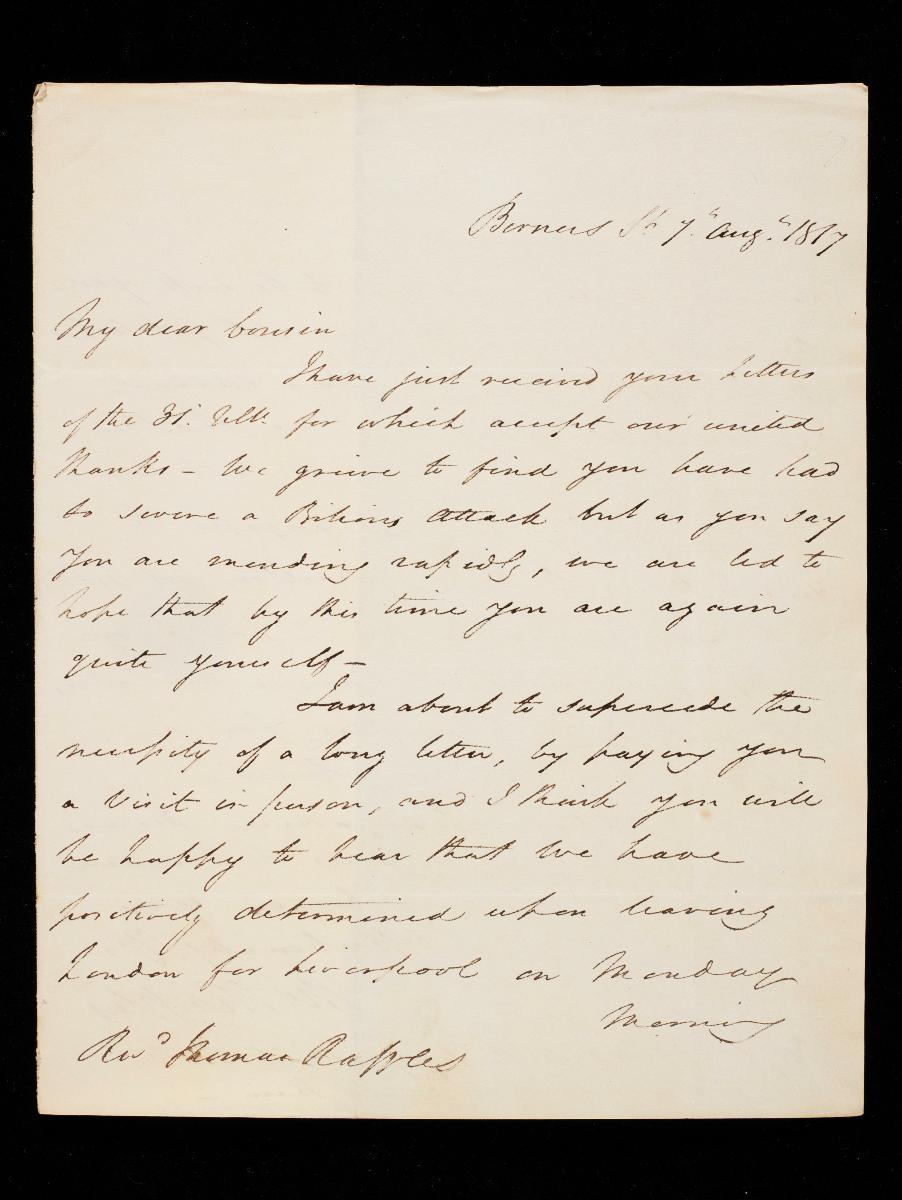 Berners St 7th Augt 1817
My dear Cousin
I have just received your Letters
of the 31st Ulto for which accept our united
thanks – We grieve to find you have had
so severe a Bilious Attack but as you say
you are mending rapidly, we are led to
hope that by this time you are again
quite yourself –
I am about to supersede the
necessity of a long letter, by paying you
a Visit in person, and I think you will
be happy to hear that We have
positively determined upon leaving
London for Liverpool on Monday
Morning
Revd Thomas Raffles